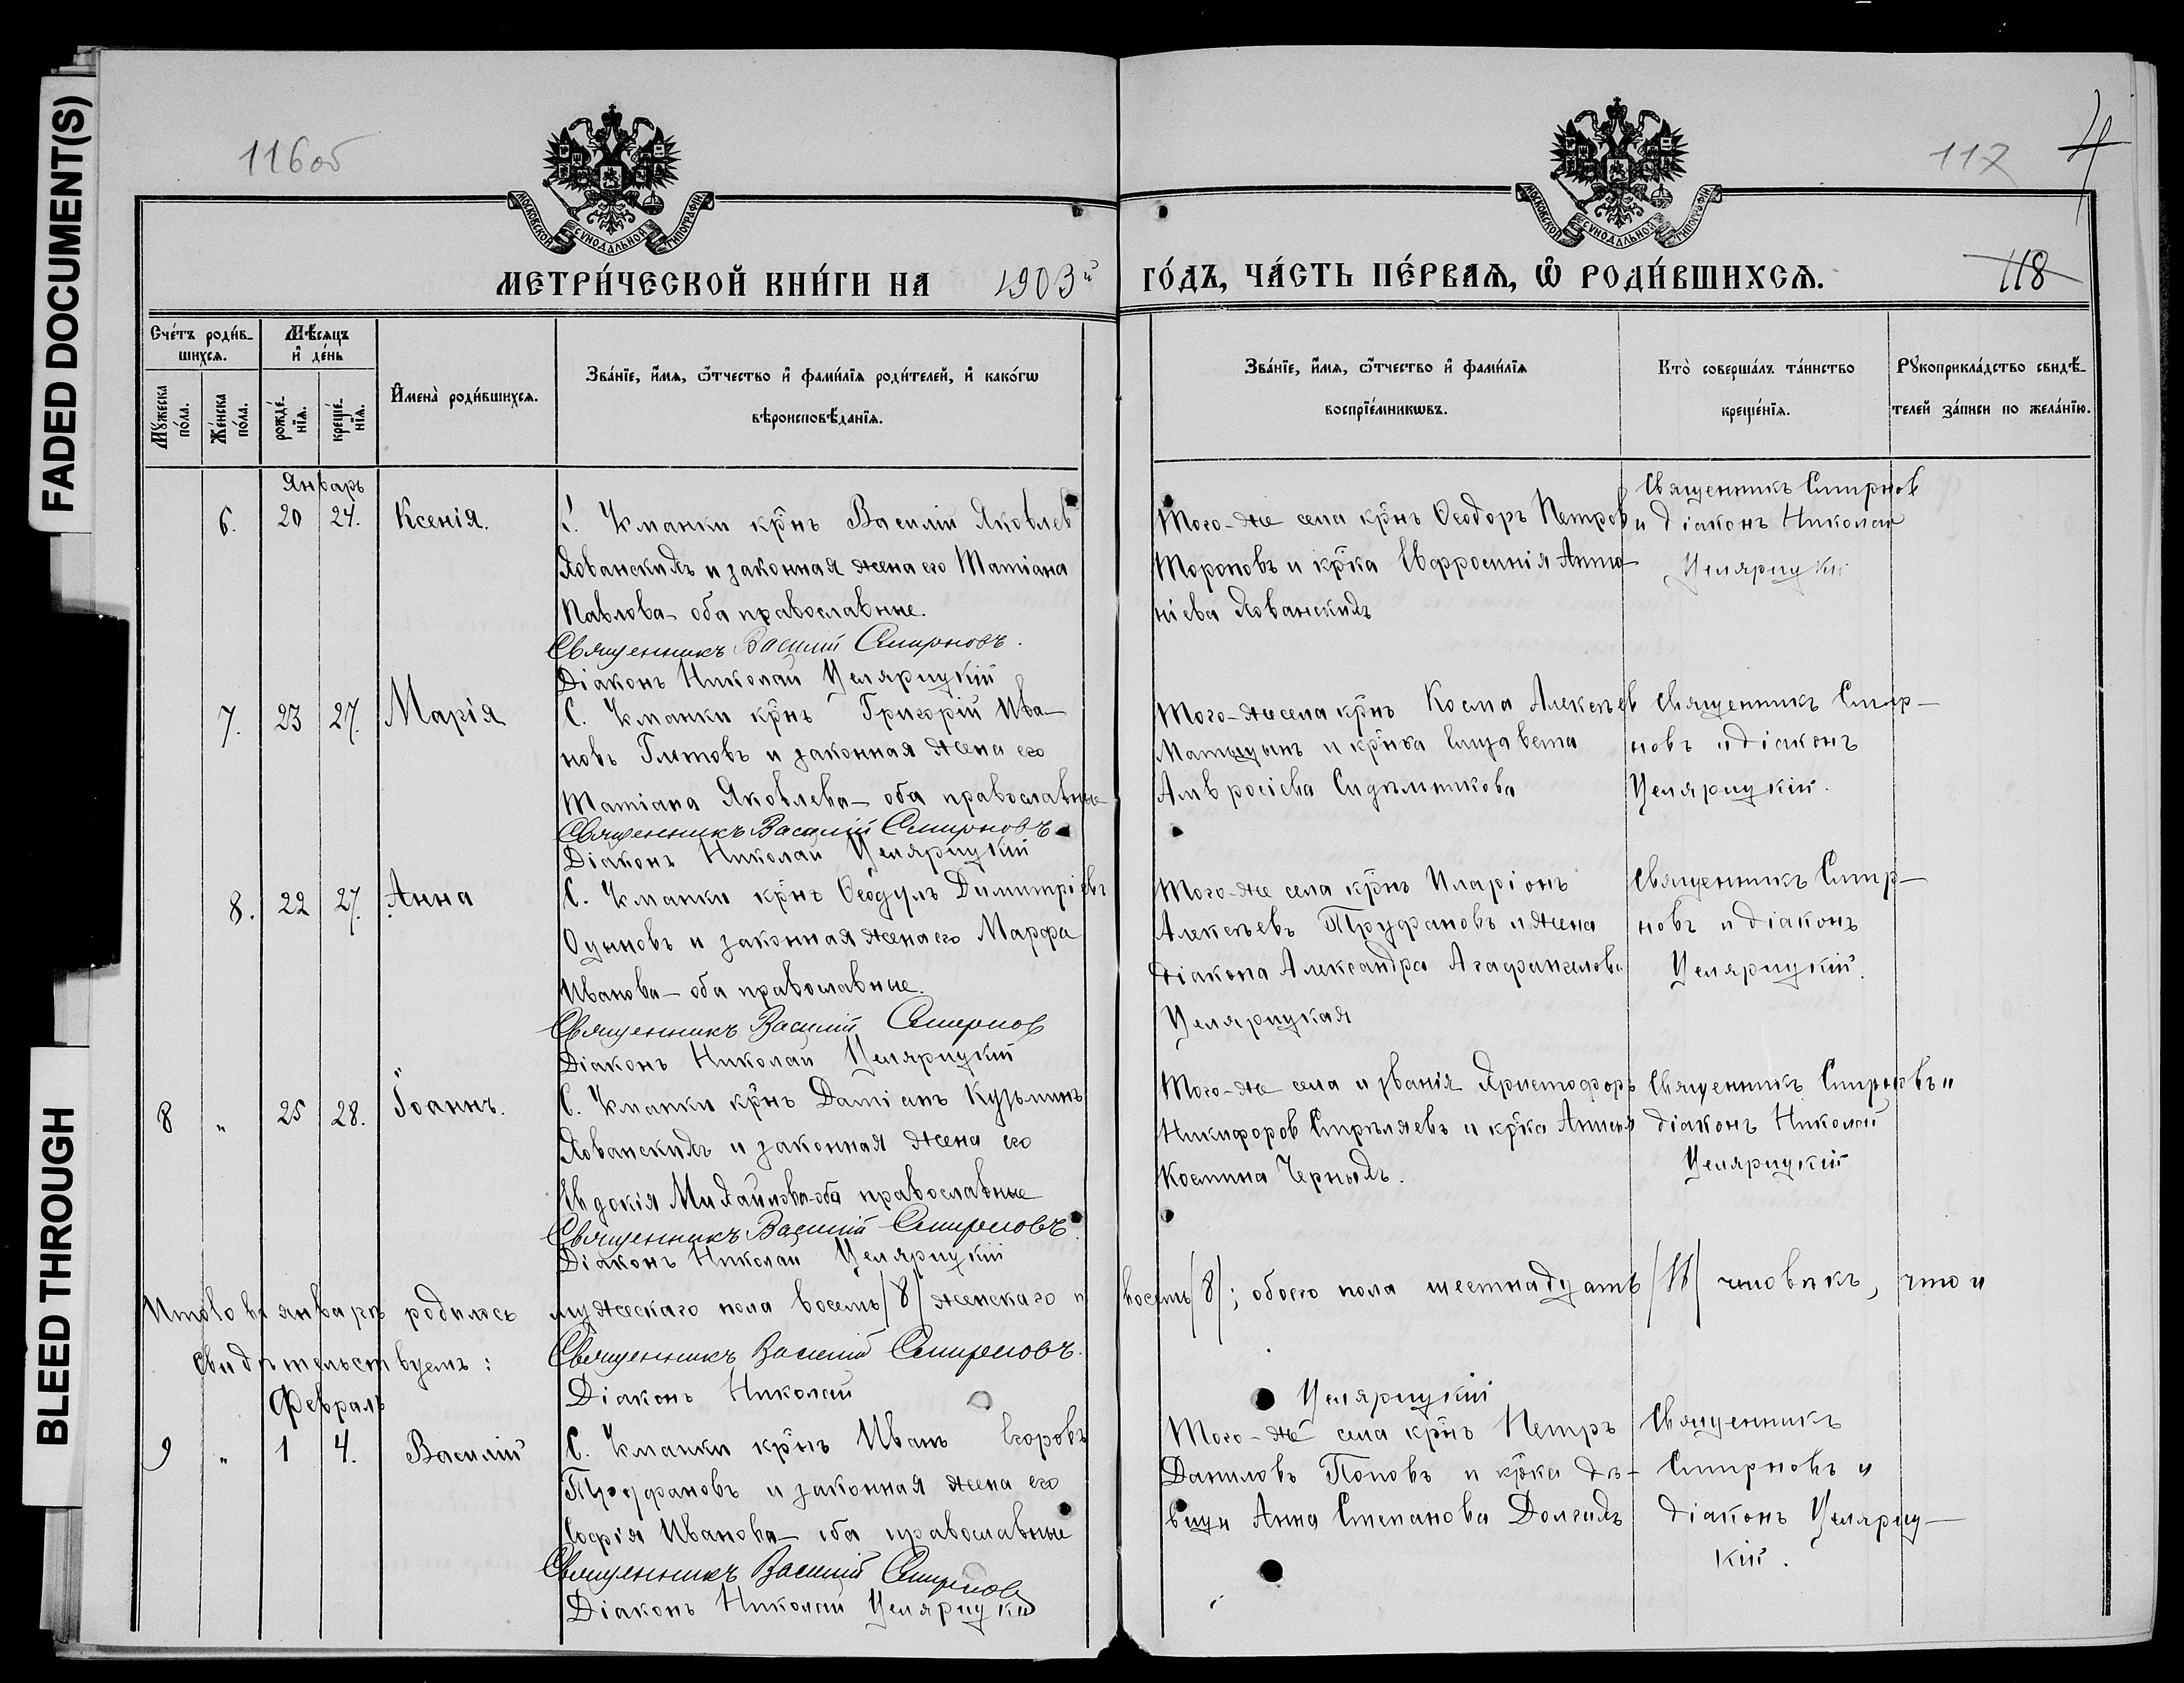 FADED DOCUMENT(S)
BLEED THROUGH
116об
117
4
МОСКОВСКОЙ СУНОДАЛЬНОЙ ТИПОГРАФІИ
МОСКОВСКОЙ СУНОДАЛЬНОЙ ТИПОГРАФІИ
МЕТРИ́ЧЕСКОЙ КНИ́ГИ НА 1903й ГО́ДЪ, ЧА́СТЬ ПЕ́РВАѦ, Ѽ РОДИ́ВШИХСѦ.
118
Сче́тъ роди́в-
шихсѧ.
Мꙋжеска по́ла.
Же́нска по́ла.
Мѣ́сѧцъ
и҆ де́нь
рожде́-
нїѧ.
креще́-
нїѧ.
И҆мена̀ роди́вшихсѧ.
Зва́нїе, и҆́мѧ, ѻ҆́тчество и҆ фами́лїѧ роди́телей, и҆ како́гѡ
вѣроисповѣ́данїѧ.
Зва́нїе, и҆́мѧ, ѻ҆́тчество и҆ фами́лїѧ
воспрїе́мникѡвъ.
Кто̀ соверша́лъ та́инство
креще́нїѧ.
Рꙋкоприкла́дство свидѣ́-
телей за́писи по жела́нїю.
Январь
6. 20 24. Ксенія.
С. Уманки кр̃нъ Василій Яковлев
Хованскихъ и законная жена его Татіана
Павлова - оба православные.
Священникъ Василій Смирновъ.
Діаконъ Николай Целярицкій
Того-же села кр̃нъ Ѳеодоръ Петров
Тороповъ и кр̃ка Евфросинія Анто-
ніева Хованскихъ
Священникъ Смирнов
и діаконъ Николай
Целярицкій
7. 23 27. Марія
С. Уманки кр̃нъ Григорій Ива-
новъ Глотовъ и законная жена его
Татіана Яковлева - оба православные
Священникъ Василій Смирновъ
Діаконъ Николай Целярицкій
Того-же села кр̃нъ Косма Алексѣев
и кр̃нка Елизавета
Амвросіева Сидѣльникова
Священникъ Смир-
новъ и діаконъ
Целярицкій.
8. 22 27. Анна
С. Уманки кр̃нъ Ѳеодулъ Димитріевъ
и законная жена его Марфа
Иванова - оба православные.
Священникъ Василій Смирнов
Діаконъ Николай Целярицкій
Того-же села кр̃нъ Иларіонъ
Алексѣевъ Труфановъ и жена
діакона Александра Агафангелова
Целярицкая
Священникъ Смир-
новъ и діаконъ
Целярицкій.
8 " 25 28. Іоаннъ.
С. Уманки кр̃нъ Даміанъ Кузьминъ
Хованскихъ и законная жена его
Евдокія Михайлова - оба православные
Священникъ Василій Смирновъ.
Діаконъ Николай Целярицкій
Того-же села и званія Христофоръ
Никифоров Стрѣляевъ и кр̃ка Анисья
Космина Черныхъ.
Священникъ Смирновъ и
діаконъ Николай
Целярицкій
Итого въ январѣ родилось мужескаго пола восемь /8/ женскаго п восемь /8/; обоего пола шестнадцать /16/ человѣкъ, что и
свидѣтельствуемъ: Священникъ Василій Смирновъ.
Діаконъ Николай Целярицкій
Февраль
9 " 1 4. Василій
С. Уманки кр̃нъ Иванъ Егоровъ
Труфановъ и законная жена его
Софія Иванова - оба православные
Священникъ Василій Смирновъ
Діаконъ Николай Целярицкій
Того-же села кр̃нъ Петръ
Даниловъ Поповъ и кр̃ка дѣ-
вица Анна Степанова Долгихъ
Священникъ
Смирновъ и
діаконъ Целяриц-
кій.